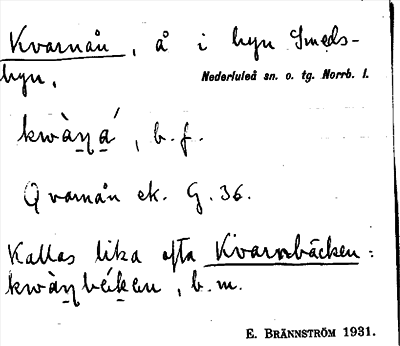 Kvarnån, å i byn Smeds-
byn.
Nederluleå sn. o. tg. Norrb. l.
kwàṉa̱ ́, b. f.
Qvarnån ek. G. 36.
Kallas lika ofta Kvarnbäcken:
kwàṉbéḵen, b. m.
E. BRÄNNSTRÖM 1931.